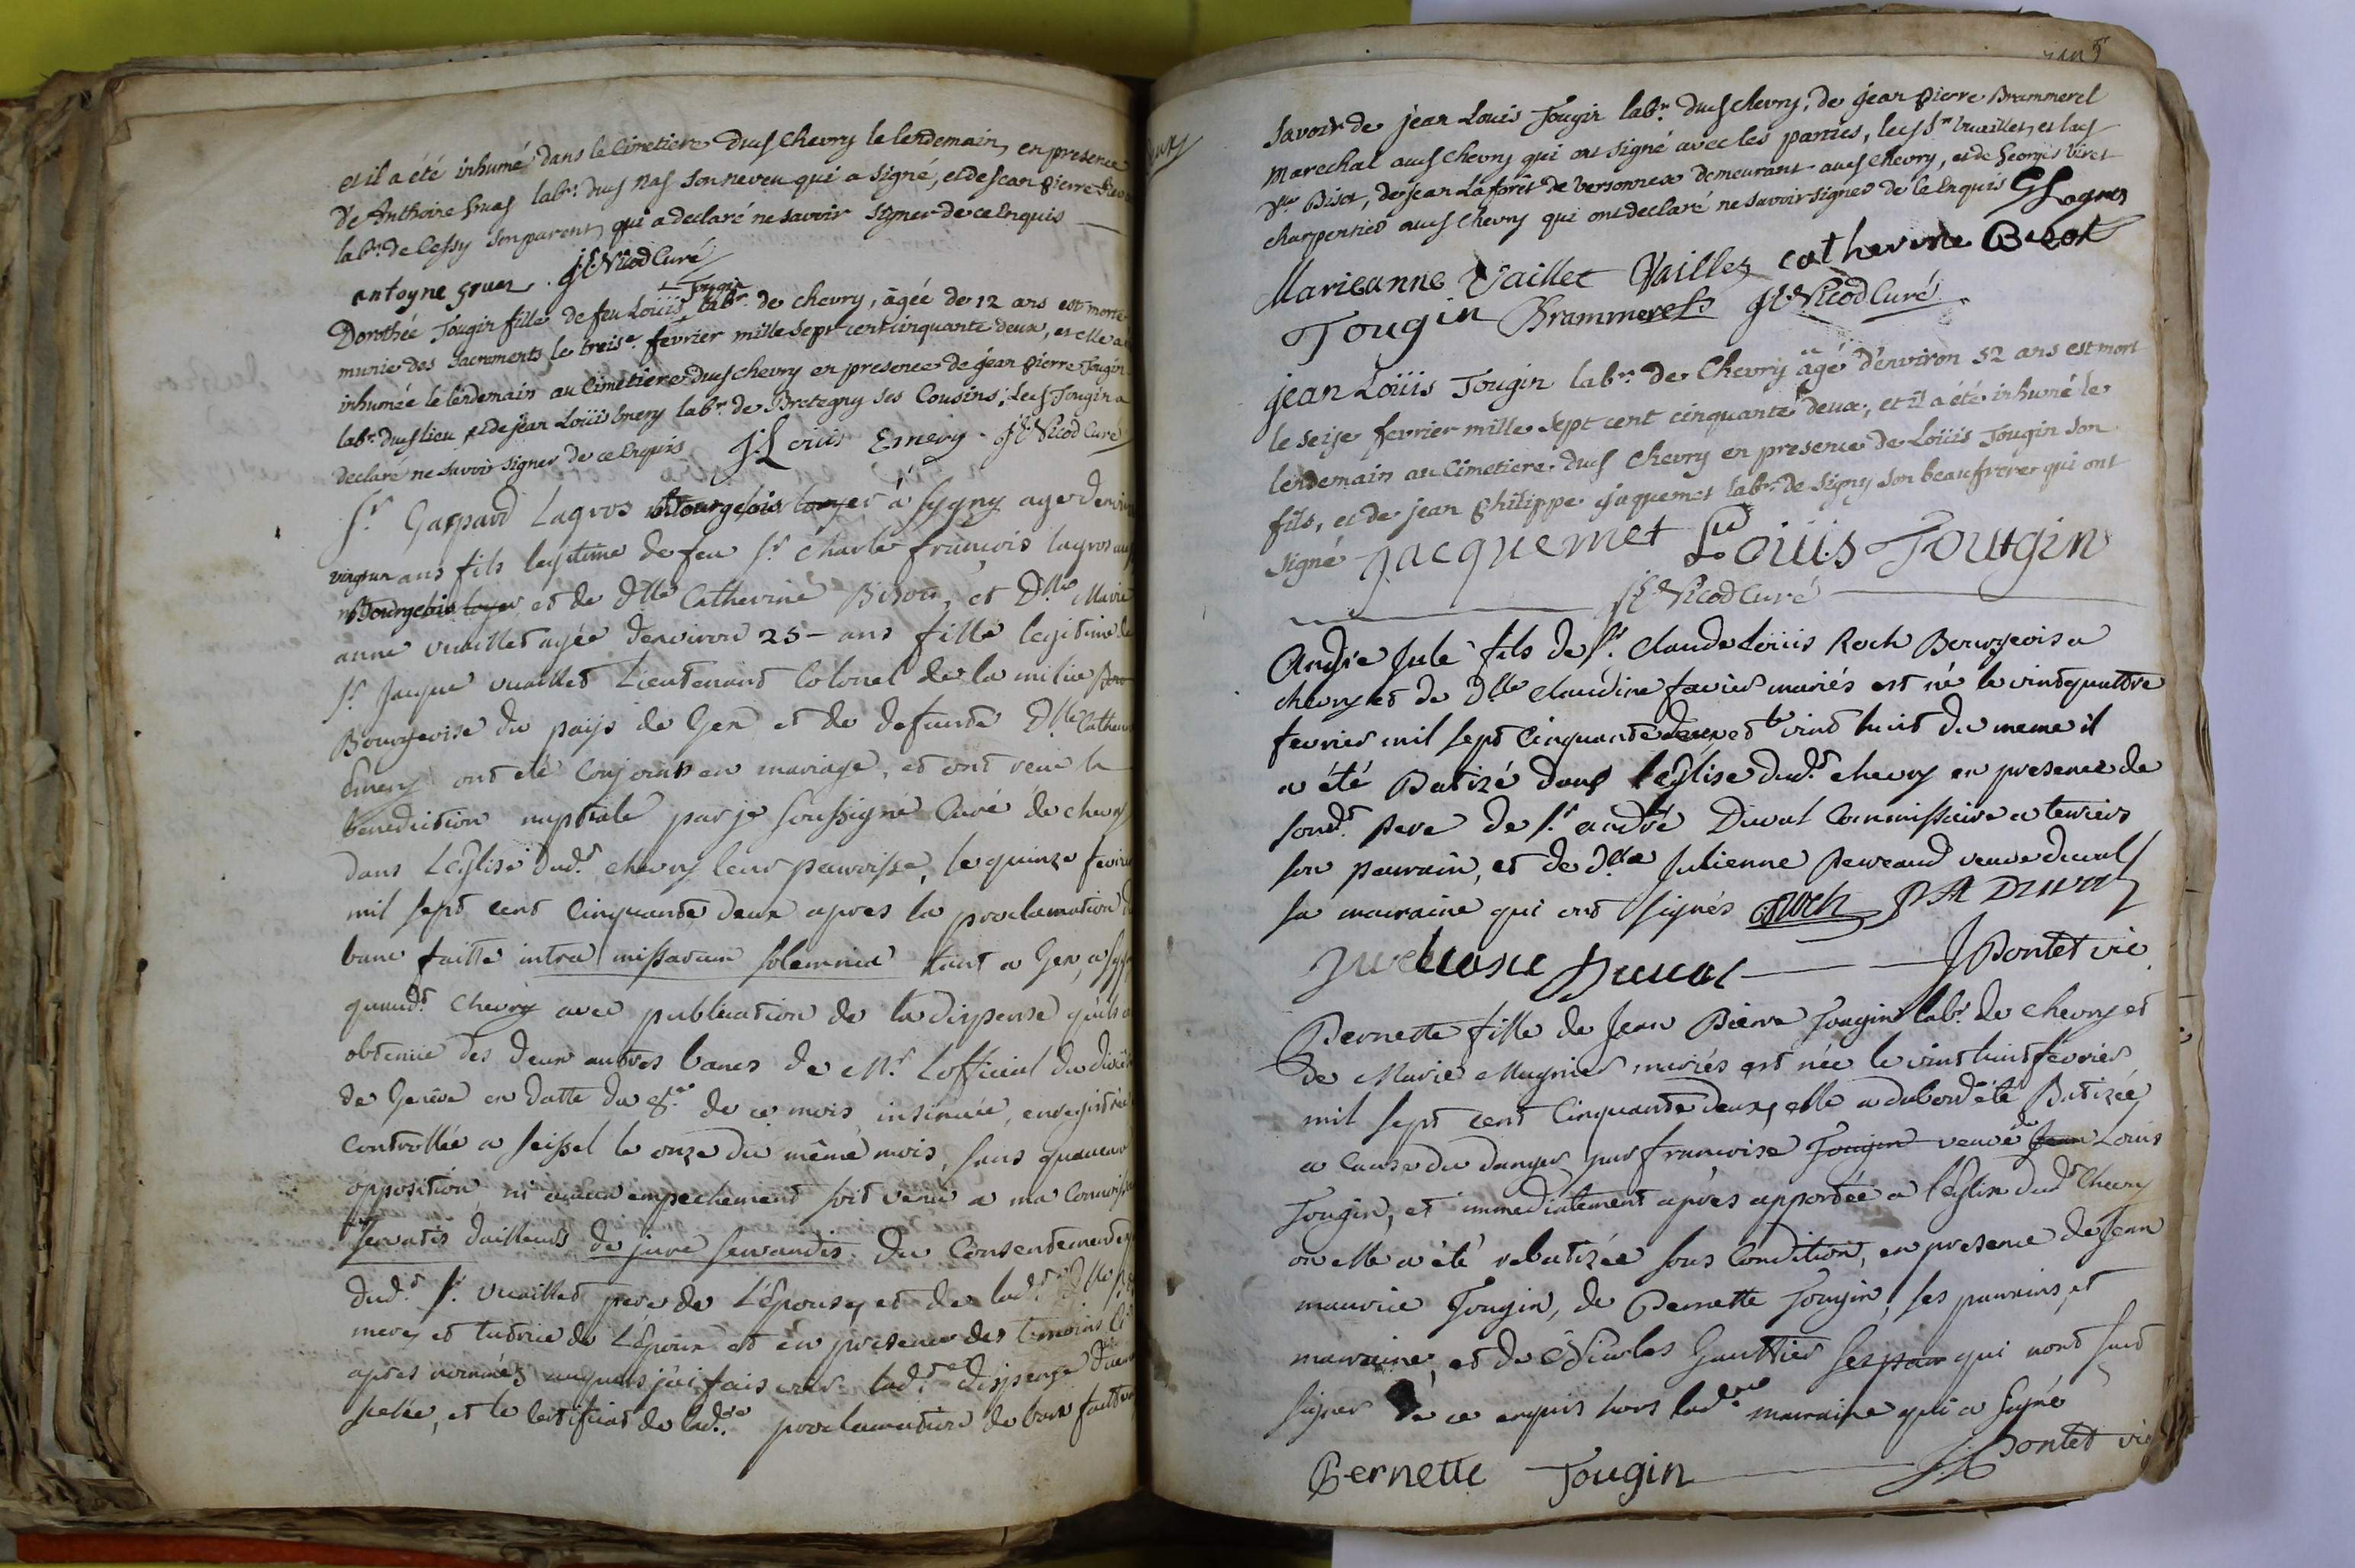 et il a été inhumé dans le Cimetiere dud Chevry le lendemain, en presence
de Anthoine gruaz labr. dud Nas son neveu qui a signé, et de jean pierre
labr. de Cessy son parent, qui a declaré ne savoir signer de ce Enquis
antoyne gruaz . Nicod Curé
Tougin
Dorothée Tougin fille de feu Loüis labr. de chevry, âgée de 12 ans est morte
munie des Sacrements le treise fevrier mille sept cent cinquante deux, et elle a
inhumée le lendemain au Cimetiere dud chevry en presence de jean pierre Tougin
labr. dud lieu et de jean Loüis Emery labr. de Bretegny ses Cousins; led Tougin a
declaré ne savoir signer de ce Enquis J Louis Emery Nicod Curé
Sr. Gaspard Lagros Bourgeois à Sygny age denviron
vingt un ans fils legitime de feu Sr. Charle françois lagros
Bourgeois et de Dlle Catherine Bizot, et Dlle Marie
anne vuaillet agée denviron 25 ans fille legitime de
Sr. Jacque vuaillet Lieutenant Colonel de la milice
Bourgeoise du païs de Gex et de defunte Dlle Catherine
Emery ont été Conjoints en mariage, et ont reçu la
benediction nuptiale par je soussigné Curé de chevry
dans L'Eglise dudt. chevry leur parroisse, le quinze fevrier
mil sept cent Cinquante deux apres la proclamation
banc faitte intra missarum solemnia tant a Gex, a
quaudt. Chevry avec publication de la dispense qu'ils
obtenüe des deux autres bancs de Mr. Lofficial du
de Genève en datte du 8e de ce mois insinuée, enregistrée
Controllée a Seissel le onze du même mois, sans quaucune
opposition ni aucun empechement soit venu a ma
servatis dailleurs de jure servandis. du Consentement
dudt. Sr. vuaillet pere de L'Epouse, et de ladte Dlle
mere, et tutrice de L'Epoux et en presence des temoins
apres nommés auquels j'ai fais voir ladte dispense
scelée, et le certificat de ladte. proclamation de banc faitte
Savoir de jean Louis Tougin labr. dud chevry, de jean pierre Brammerel
marechal aud chevry qui ont signé avec les parties, led Sr vuaillet, et lad
Dlle Bisot, de jean Laforêt de versonnex demeurant aud chevry, et de Georges Viret
charpentier aud chevry qui ont declaré ne savoir signer de ce Enquis G Lagros
Marieanne Vaillet Vaillet catherine Bisot
Tougin Brammerel Nicod Curé
jean Loüis Tougin labr. de Chevry âgé d'environ 52 ans est mort
le seise fevrier mille sept cent cinquante deux, et il a été inhumé le
lendemain au Cimetiere dud Chevry en presence de Loüis Tougin son
fils, et de jean philippe jaquemet labr. de Signy son beaufrere, qui ont
signé jacquemet Loüis Tougin
Nicod Curé
Andre Jule fils de Sr. Claude Loüis Roch Bourgeois a
chevry et de Dlle Claudine favier mariés est né le vint quattre
fevrier mil sept Cinquante deux, et le vint huit du meme il
a été Batizé dans l'Eglise dudt. chevry en presence de
sondt. Pere de Sr. andré Duval Commissaire a terriers
son parrain, et de Dlle Julienne Perreaud veuve duval
sa marraine qui ont signés Roch P A Duval
Duval J Pontet vic
Pernette fille de Jean Pierre Tougin labr. de Chevry et
de Marie Mugnier mariés est née le vint huit fevrier
mil sept cent Cinquante deux, elle a dabord été Batizée
a Cause du danger par francoise Tougin veuve de Jean Louis
Tougin, et immediatement après apportée a l'eglise dudt Chevry
ou elle a été rebatizée sous Condition, en presence de Jean
maurice Tougin, de Pernette Tougin, ses parrains, et
marraine, et de Nicolas Gauttier qui nont sceu
signer de ce enquis hors ladte marraine qui a signé
Pernette Tougin J Pontet vic